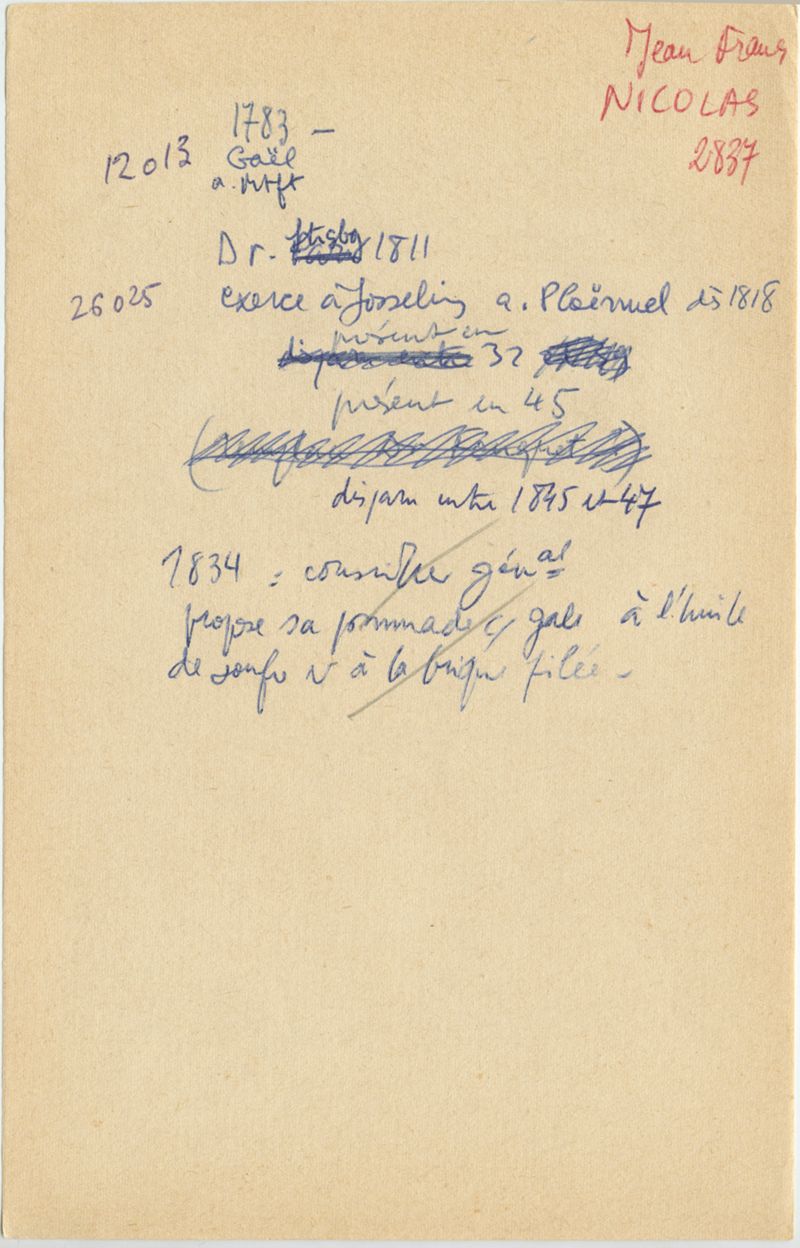 Jean Frans
NICOLAS
2837
1783 —
12013 Gaël
a. Mtft
Dr. Stsbg 1811
26025 exerce à Josselin a. Ploërmel dès 1818
présent en
32
présent en 45
disparu entre 1845 et 47
1834 : conseiller génal
propose sa pommade c/ gale à l'huile
de soufre et à la brique pilée -